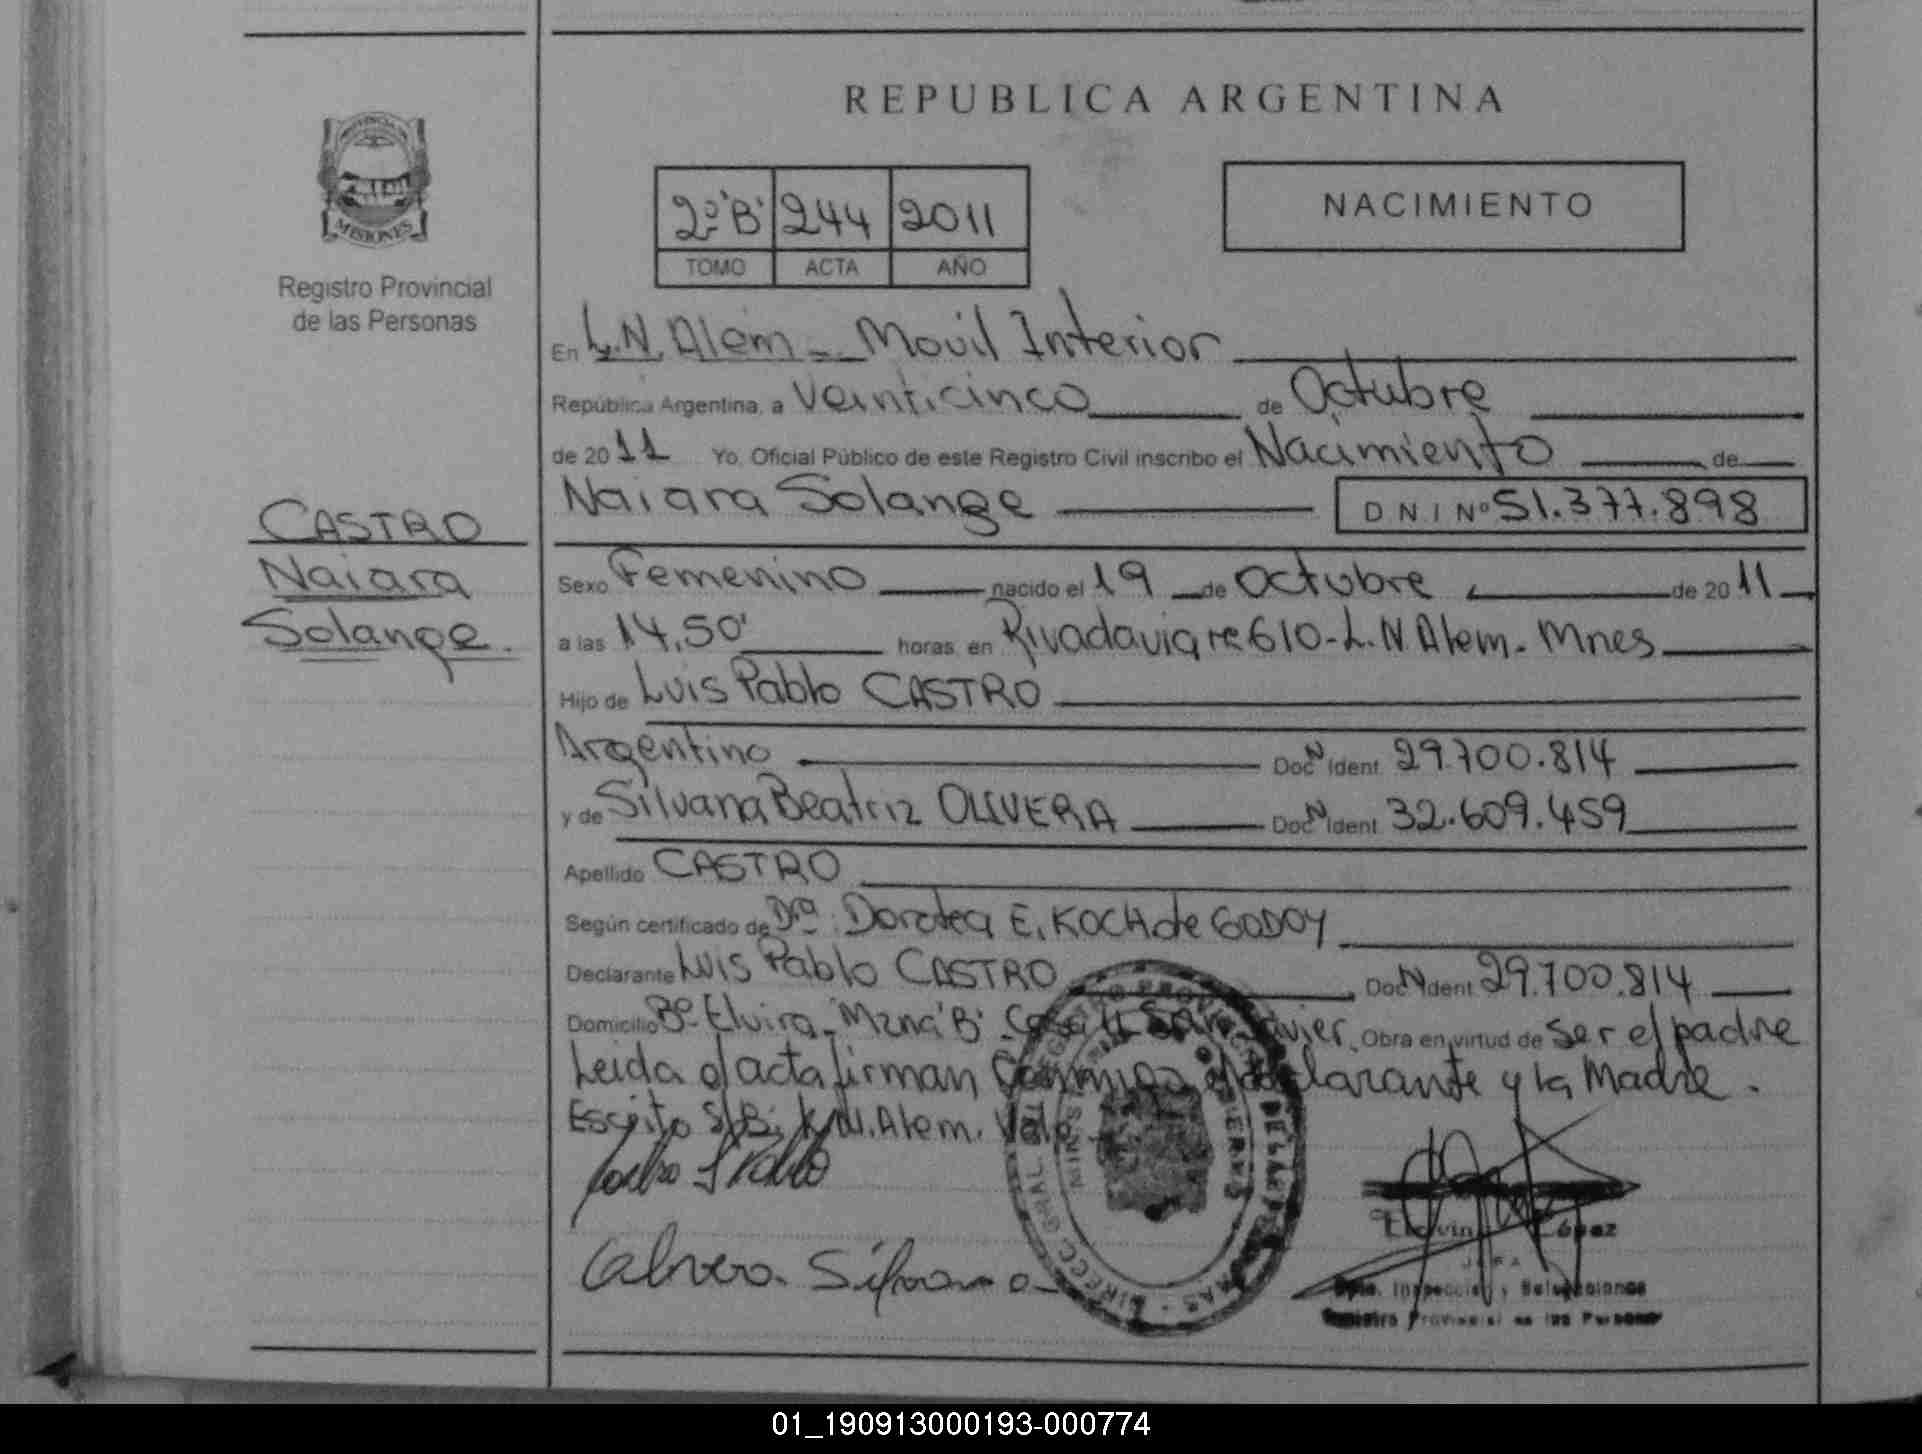 REPUBLICA ARGENTINA
PROVINCIA DE
MISIONES
Registro Provincial
de las Personas
2º "B" 244 2011
TOMO ACTA AÑO
NACIMIENTO
En L.N. Alem - Movil Interior
República Argentina, a Veinticinco de Octubre
de 2011 Yo, Oficial Público de este Registro Civil inscribo el Nacimiento de
Naiara Solange D N I Nº 51.377.898
CASTRO
Naiara
Solange.
Sexo Femenino nacido el 19 de Octubre de 2011
a las 14,50' horas, en Rivadavia re 610 - L.N Alem. Mnes
Hijo de Luis Pablo CASTRO
Argentino Doc N Ident. 29.700.814
y de Silvana Beatriz OLIVERA Doc N Ident. 32.609.459
Apellido CASTRO
Según certificado de Dra. Dorotea E. KOCH de GODOY
Declarante Luis Pablo CASTRO Doc N Ident. 29.700.814
Domicilio Bº Elvira - Mzna "B" Casa Obra en virtud de Ser el padre
Leida el acta firman Conmigo el declarante y la Madre.
Escrito S/B: L.N. Alem. Vale
López
JEFA
Dpto. Inspección y
Registro Provincial de las Personas
01_190913000193-000774